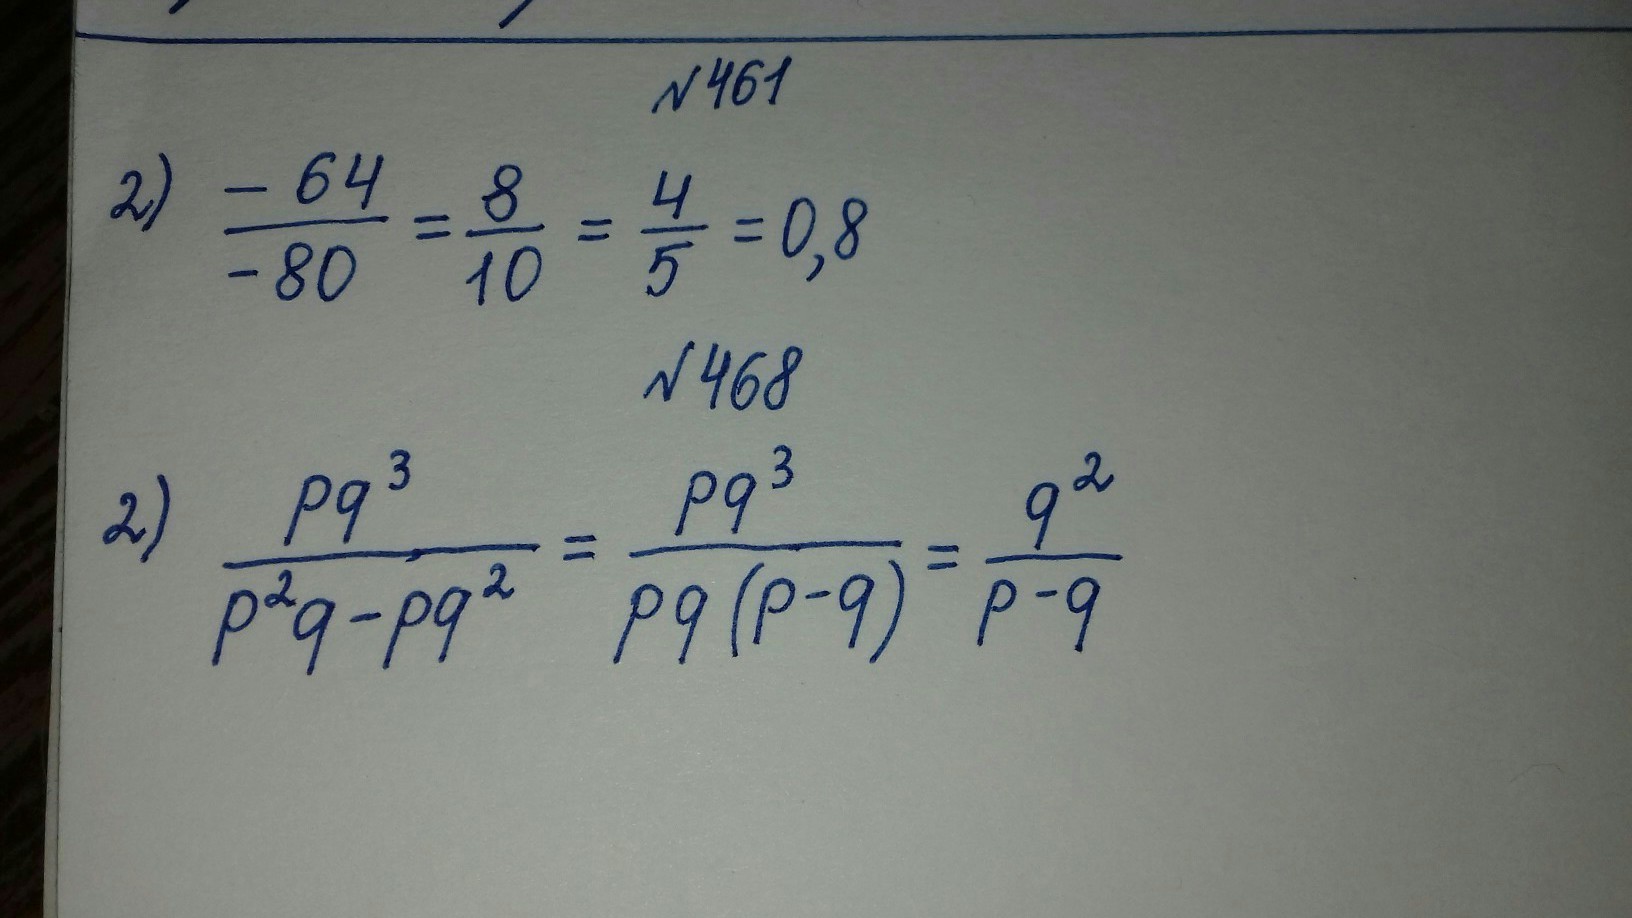 №461
2) -64/-80 = 8/10 = 4/5 = 0,8
№468
2) pq³/p²q-pq² = pq³/pq(p-q) = q²/p-q